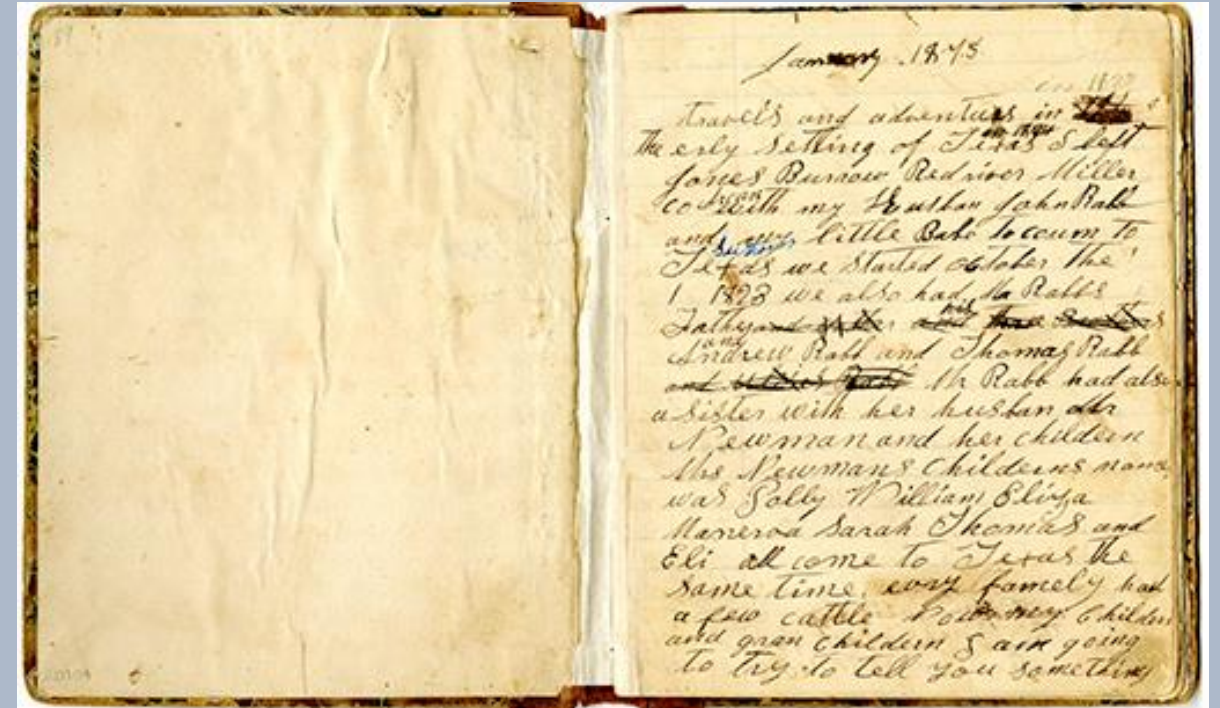 January 1875
in 1822
travels and adventurs in
the erly setling of Texas I left
Jones Burrow Redriver Miller
co with my Husban John Rabb
and my little Babe to coum to
Texas we started october the
1 1823 we also had Mr Rabbs
Father his
and
Andrew Rabb and Thomas Rabb
Mr Rabb had also
a sister with her husban Mr
Newman and her childern
Mrs Newmans Childerns name
was Polly William Eliza
Manerva Sarah Thomas and
Eli all come to Texas the
same time. evry famely had
a few cattle Now my Childern
and gran childern I am going
to try to tell you something